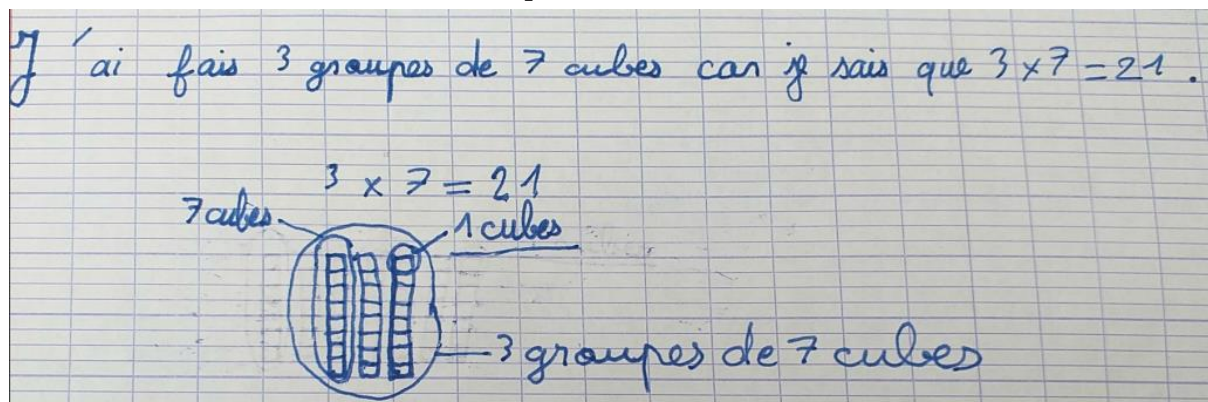 J'ai fais 3 groupes de 7 cubes car je sais que 3 x 7 = 21.
3 x 7 = 21
7 cubes
1 cubes
3 groupes de 7 cubes